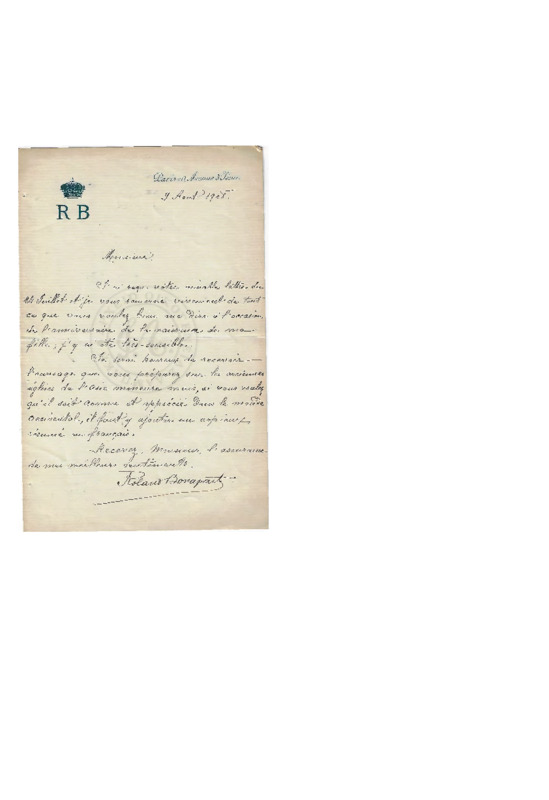 RB
9 Août
Monsieur,
J'ai reçu votre aimable lettre du
Juillet et je vous remercie vivement de tout
ce que vous voulez bien me dire à l'occasion
de l'anniversaire de la naissance de ma
fille, j'y ai été très-sensible.
Je serai heureux de recevoir
l'ouvrage que vous préparez sur les anciennes
églises de l'Asie mineure mais, si vous voulez
qu'il soit connu et apprécié dans le monde
occidental, il faut y ajouter un copieux
résumé en français.
Recevez, Monsieur, l'assurance
de mes meilleurs sentiments.
Roland Bonaparte